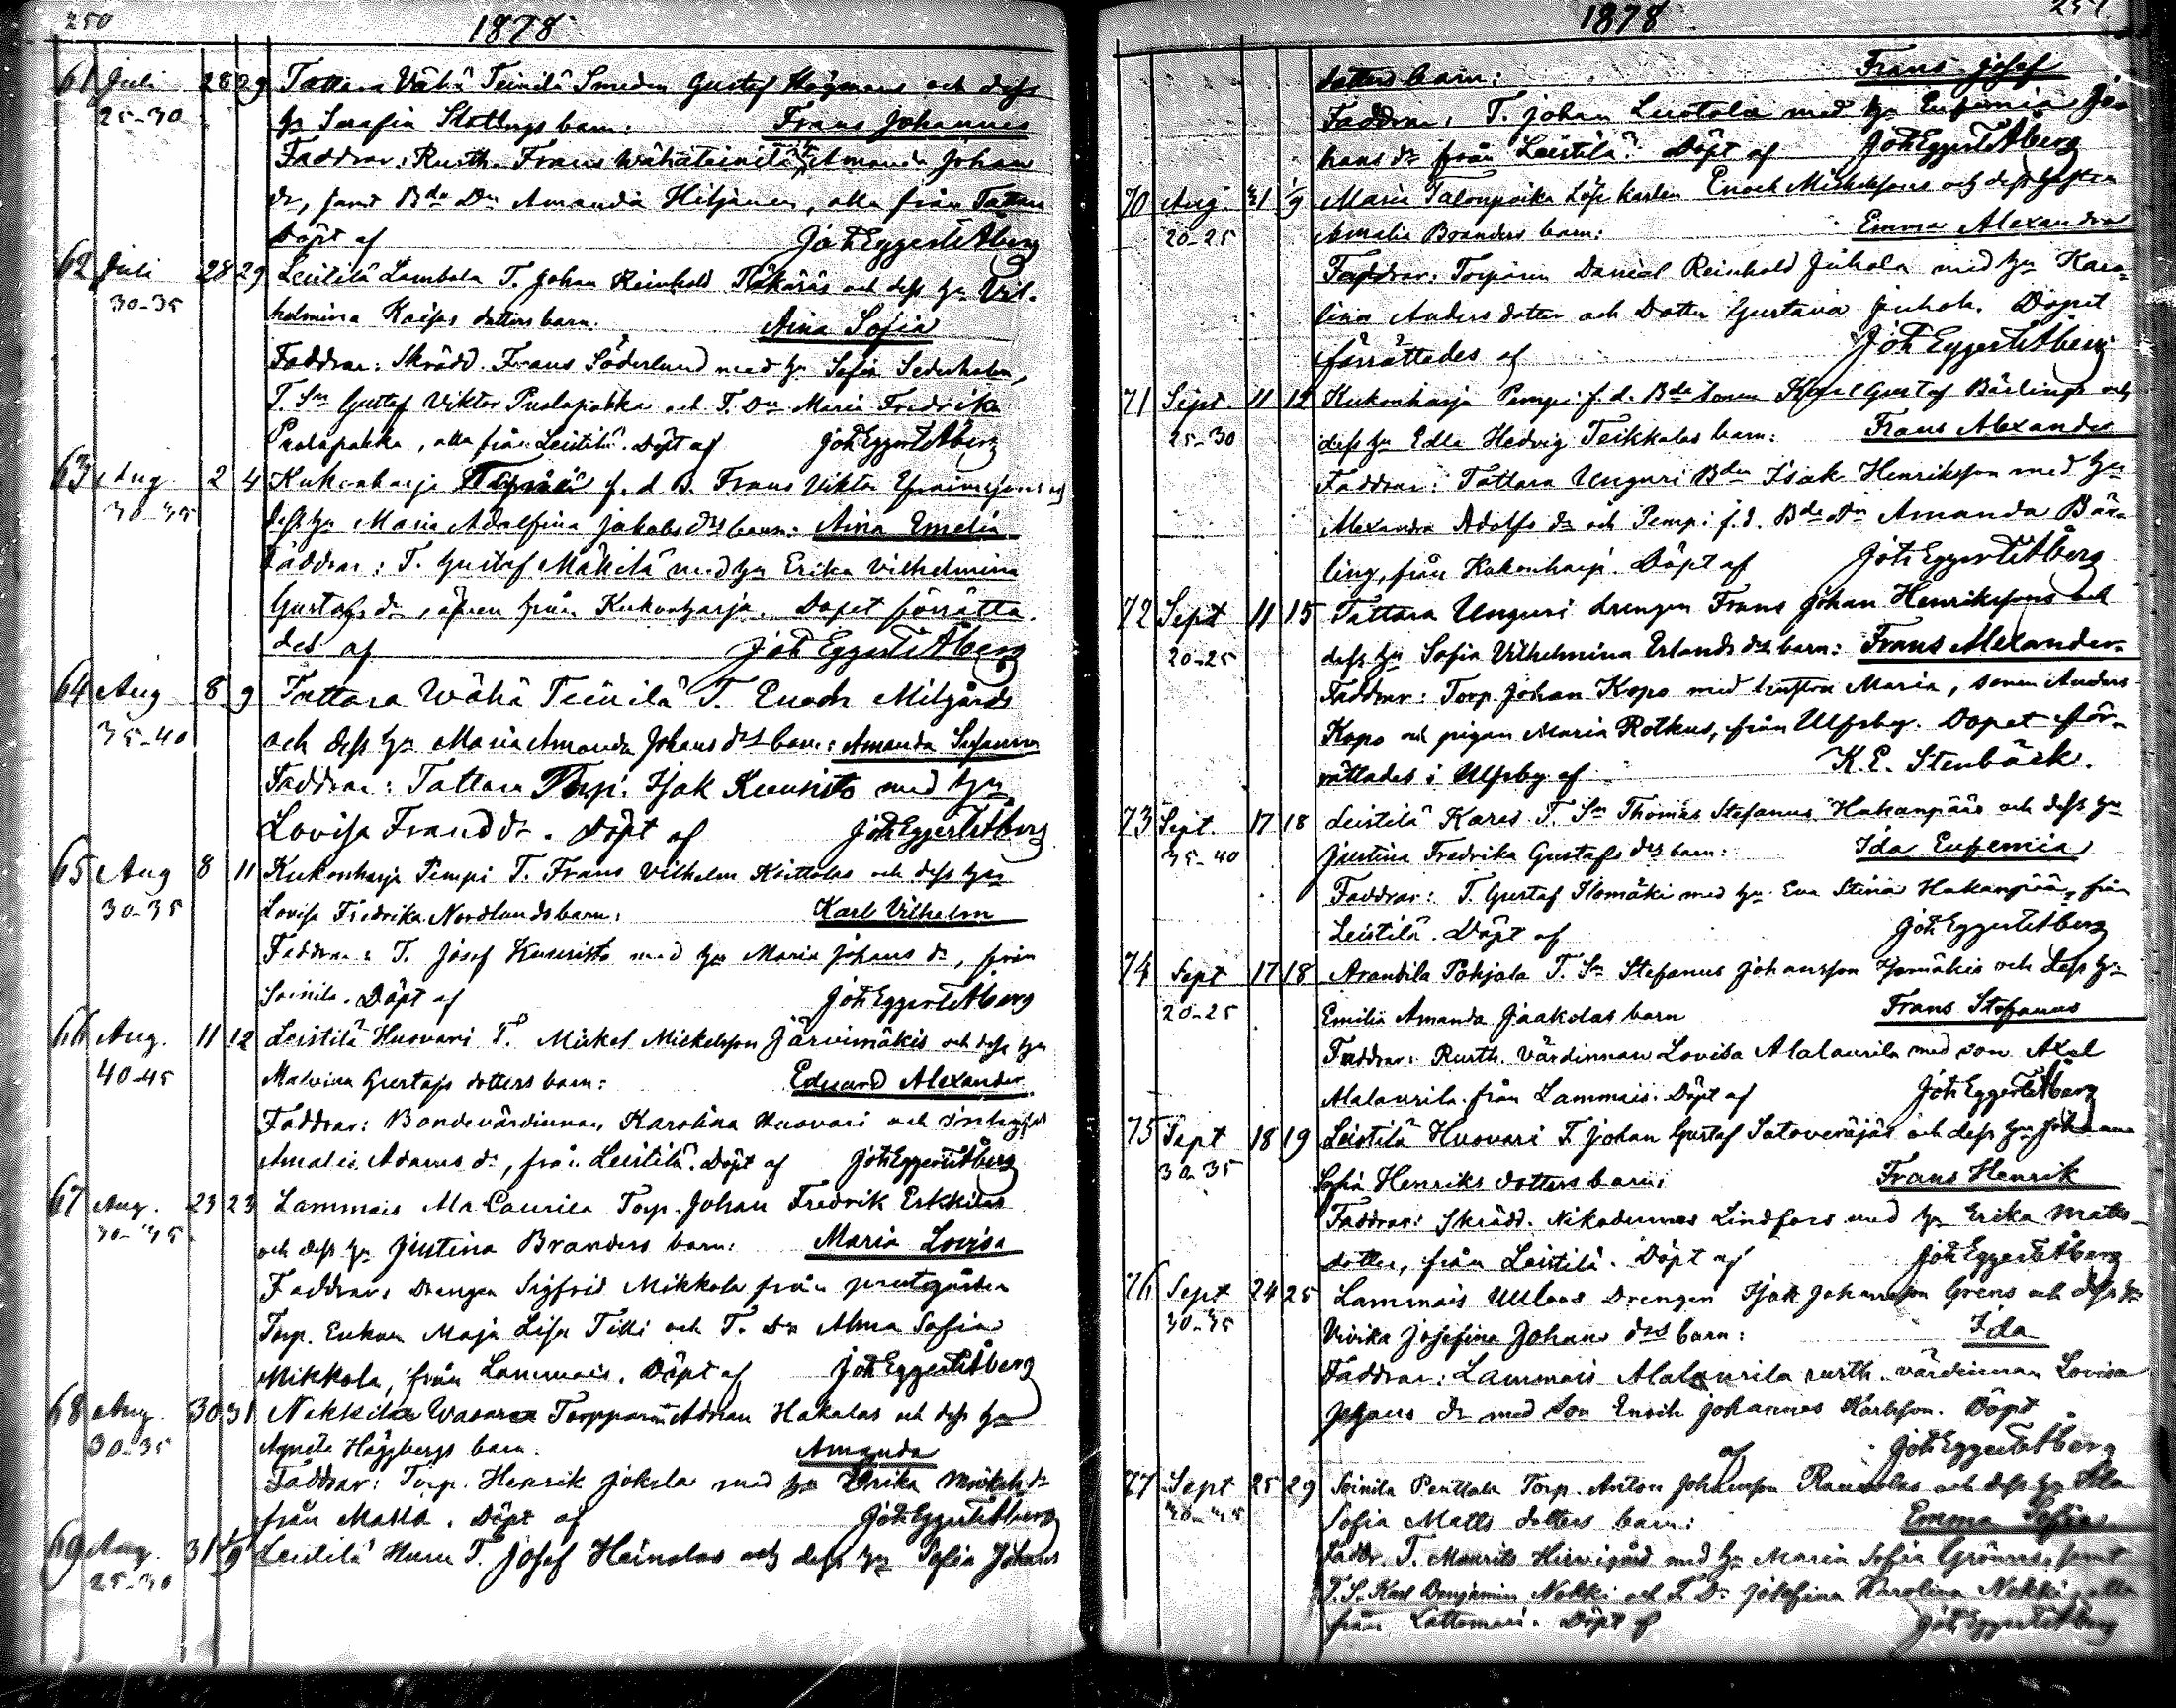 250
1878
61 Juli 28 29 Tattara Vähä Teinilä Smeden Gustaf Hägmans och dess
25-30 hu Serafia barn: Frans Johannes
Faddrar: Rusth. Frans Wähäteinilä Amanda Johans
dr, samt Bde Dn Amanda Hiljanen, alla från Tattara
Döpt af Joh Eggert Åberg
62 Juli 28 29 Leistilä Lambala T. Johan Reinhold och dess hu Vil-
30-35 helmina Kaisas dotters barn. Aina Sofia
Faddrar: Skrädd. Frans Söderlund med hu Sofia Sederholm,
T. Sn Gustaf Viktor Puolapakka och T. Dn Maria Fredrika
Puolapakka, alla från Leistilä. Döpt af Joh Eggert Åberg
63 Aug. 2 4 Kukonharja f. d. B. Frans Viktor Efraimssons och
30-35 dess hu Maria Adolfina Jakobs drs barn: Aina Emelia
Faddrar: T. Gustaf Mäkilä med hu Erika Vilhelmina
Gustafs dr, äfven från Kukonharja. Dopet förrätta-
des af Joh Eggert Åberg
64 Aug 8 9 Tattara Wähä Teinilä T. Enoch Milgårds
35-40 och dess hu Maria Amanda Johans drs barn: Amanda Susanna
Faddrar: Tattara Torp. Isak Kuusisto med hu
Lovisa Frans dr. Döpt af Joh Eggert Åberg
65 Aug 8 11 Kukonharja Pempi T. Frans Vilhelm Knittolas och dess hu
30-35 Lovisa Fredrika Nordlunds barn: Karl Vilhelm
Faddrar: T. Josef Kuusisto med hu Maria Johans dr, från
Soinila. Döpt af Joh Eggert Åberg
66 Aug. 11 12 Leistilä Huovari T. Mickel Mickelsson Järvimäkis och dess hu
40-45 Malvina Gustafs dotters barn: Eduard Alexander
Faddrar: Bondevärdinnan Karolina Huovari och
Amalie Adams dr, från Leistilä. Döpt af Joh Eggert Åberg
67 Aug. 23 23 Lammais Ala Laurila Torp. Johan Fredrik Erkkilas
30-35 och dess hu Justina Branders barn: Maria Lovisa
Faddrar: Drengen Sigfrid Mikkola från prestgården
Torp. Enkan Maja Lisa Tilli och T. Dr Alma Sofia
Mikkola, från Lammais. Döpt af Joh Eggert Åberg
68 Aug. 30 31 Nakkila Wasara Torpparn Adrian Hakalas och dess hu
30-35 Agneta Höggbergs barn. Amanda
Faddrar: Torp. Henrik Jokela med hu Ulrika Michels dr
från Matla. Döpt af Joh Eggert Åberg
69 Aug. 31 1/9 Leistilä Huru T. Josef Heinolas och dess hu Sofia Johans
25-30
251
1878
dotters barn: Frans Josef
Faddrar: T. Johan Leistola med hu Eufemia Jo-
hans dr från Leistilä. Döpt af Joh Eggert Åberg
70 Aug. 31 1/9 Maria Talonpoika Lösekarlen Enoch Michelssons och dess hustru
20-25 Amalia Branders barn: Emma Alexandra
Faddrar: Torparen Daniel Reinhold Juhola med hu Karo-
lina Anders dotter och Dotter Gustava Juhola. Dopet
förrättades af Joh Eggert Åberg
71 Sept. 11 12 Kukonharja Pempi f. d. Bde sonen Karl Gustaf Bärlings och
25-30 dess hu Edla Hedvig Teikkalas barn: Frans Alexander
Faddrar: Tattara Unguri Bden Isak Henriksson med hu
Alexandra Adolfs dr och Pempi f. d. Bde Dn Amanda Bär-
ling, från Kukonharja. Döpt af Joh Eggert Åberg
72 Sept 11 15 Tattara Unguri drengen Frans Johan Henrikssons och
20-25 dess hu Sofia Vilhelmina Erlands drs barn: Frans Alexander
Faddrar: Torp. Johan Kopo med hustru Maria, sonen Anders
Kopo och pigan Maria Rotkus, från Ulfsby. Dopet för-
rättades i Ulfsby af K. E. Stenbäck.
73 Sept. 17 18 Leistilä Kares T. Sn Thomas Stefanus Hakanpääs och dess hu
35-40 Justina Fredrika Gustafs drs barn: Ida Eufemia
Faddrar: T. Gustaf Isomäki med hu Eva Stina Hakanpää, från
Leistilä. Döpt af Joh Eggert Åberg
74 Sept 17 18 Arandila Pohjala T. Sn Stefanus Johansson Isomäkis och dess hu
20-25 Emilia Amanda Jaakolas barn Frans Stefanus
Faddrar: Rusth. värdinnan Lovisa Alalaurila med son Axel
Alalaurila från Lammais. Döpt af Joh Eggert Åberg
75 Sept 18 19 Leistilä Huovari T Johan Gustaf Satoveräjäs och dess hu Johanna
30-35 Sofia Henriks dotters barn: Frans Henrik
Faddrar: Skrädd. Nikodemus Lindfors med hu Erika Matts-
dotter, från Leistilä. Döpt af Joh Eggert Åberg
76 Sept 24 25 Lammais Ulloos Drengen Isak Johansson Grens och dess hu
30-35 Vivika Josefina Johans drs barn: Ida
Faddrar: Lammais Alalaurila rusth. värdinnan Lovisa
Johans dr med son Enoch Johannes Karlsson. Döpt
af Joh Eggert Åberg
77 Sept 25 29 Soinila Penttala Torp. Anton Johansson och dess hu
Sofia Matts dotters barn: Emma Sofia
Faddr. T. Maurits Hirvigård med hu Maria Sofia Grönroos, samt
T. S. Karl Benjamin Nokki och T. Dr Josefina Karolina Nokki alla
från Lattomeri. Döpt af Joh Eggert Åberg